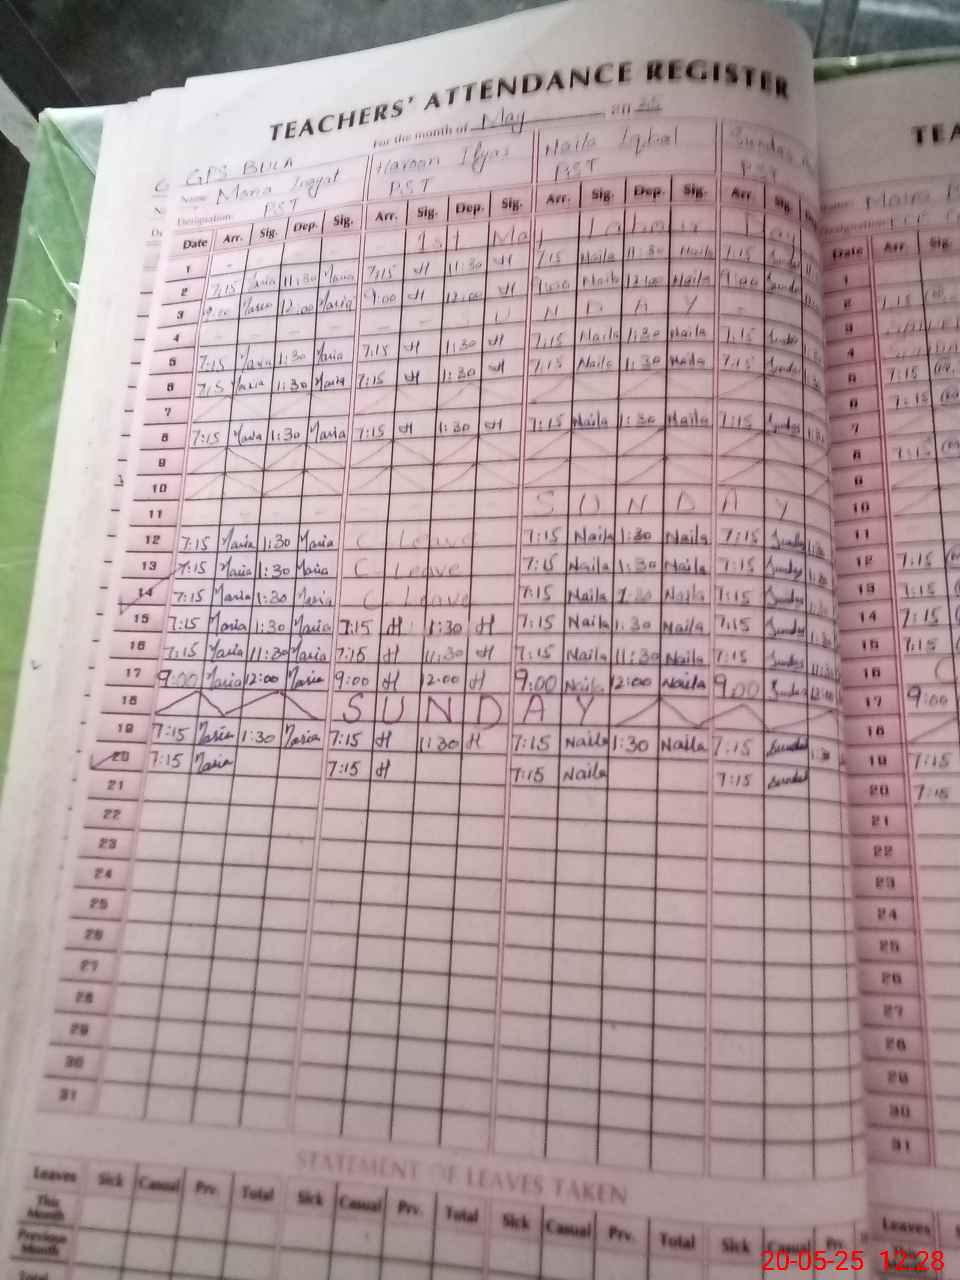 TEACHERS' ATTENDANCE REGISTER
For the month of May 20 25
GPS BULA
Name Maria Inayat Haroon Ilyas Naila Iqbal Sundas
Designation: PST PST PST PST
Date Arr. Sig. Dep. Sig. Arr. Sig. Dep. Sig. Arr. Sig. Dep. Sig. Arr Sig.
1 1st May Labour Day
2 7:15 Maria 11:30 Maria 7:15 H 11:30 H 7:15 Naila 11:30 Naila 7:15 Sundas
3 9:00 Maria 12:00 Maria 9:00 H 12:00 H 9:00 Naila 12:00 Naila 9:00 Sundas
4 S U N D A Y
5 7:15 Maria 1:30 Maria 7:15 H 1:30 H 7:15 Naila 1:30 Naila 7:15 Sundas
6 7:15 Maria 1:30 Maria 7:15 H 1:30 H 7:15 Naila 1:30 Naila 7:15 Sundas
7
8 7:15 Maria 1:30 Maria 7:15 H 1:30 H 7:15 Naila 1:30 Naila 7:15 Sundas 1:30
9
10
11 S U N D A Y
12 7:15 Maria 1:30 Maria C Leave 7:15 Naila 1:30 Naila 7:15 Sundas 1:30
13 7:15 Maria 1:30 Maria C. Leave 7:15 Naila 1:30 Naila 7:15 Sundas 1:30
14 7:15 Maria 1:30 Maria C Leave 7:15 Naila 1:30 Naila 7:15 Sundas
15 7:15 Maria 1:30 Maria 7:15 H 1:30 H 7:15 Naila 1:30 Naila 7:15 Sundas 1:30
16 7:15 Maria 11:30 Maria 7:15 H 11:30 H 7:15 Naila 11:30 Naila 7:15 Sundas 11:30
17 9:00 Maria 12:00 Maria 9:00 H 12:00 H 9:00 Naila 12:00 Naila 9:00 Sundas 12:00
18 S U N D A Y
19 7:15 Maria 1:30 Maria 7:15 H 1:30 H 7:15 Naila 1:30 Naila 7:15 Sundas 1:30
20 7:15 Maria 7:15 H 7:15 Naila 7:15 Sundas
21
22
23
24
25
26
27
28
29
30
31
STATEMENT OF LEAVES TAKEN
Leaves Sick Casual Prv. Total Sick Casual Prv. Total Sick Casual Prv. Total Sick Casual Prv.
This Month
Previous Month
Total
TEA
Designation
Date Arr. Sig.
1
2 7:15
3
4
5 7:15
6 7:15
7
8 7:15
9
10
11
12 7:15
13 7:15
14 7:15
15 7:15
16 C
17 9:00
18
19 7:15
20 7:15
21
22
23
24
25
26
27
28
29
30
31
Leaves
This
20-05-25 12:28